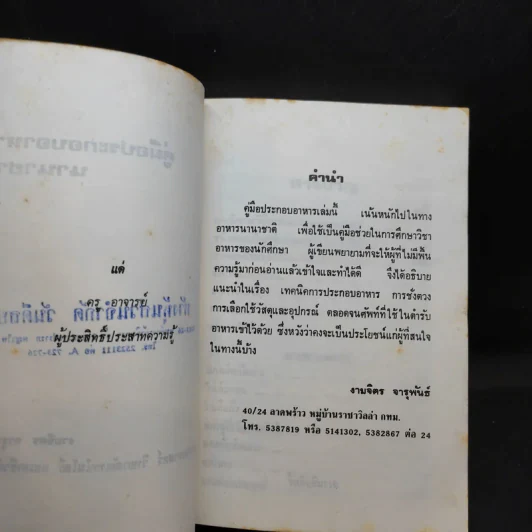 แด่
ครู อาจารย์
ผู้ประสิทธิ์ประสาทความรู้
คำนำ
คู่มือประกอบอาหารเล่มนี้ เน้นหนักไปในทาง
อาหารนานาชาติ เพื่อใช้เป็นคู่มือช่วยในการศึกษาวิชา
อาหารของนักศึกษา ผู้เขียนพยายามที่จะให้ผู้ที่ไม่มีพื้น
ความรู้มาก่อนอ่านแล้วเข้าใจและทำได้ดี จึงได้อธิบาย
แนะนำในเรื่อง เทคนิคการประกอบอาหาร การชั่งตวง
การเลือกใช้วัสดุและอุปกรณ์ ตลอดจนศัพท์ที่ใช้ในตำรับ
อาหารเข้าไว้ด้วย ซึ่งหวังว่าคงจะเป็นประโยชน์แก่ผู้ที่สนใจ
ในทางนี้บ้าง
งามจิตร จารุพันธ์
40/24 ลาดพร้าว หมู่บ้านราชาวิลล่า กทม.
โทร. 5387819 หรือ 5141302, 5382867 ต่อ 24